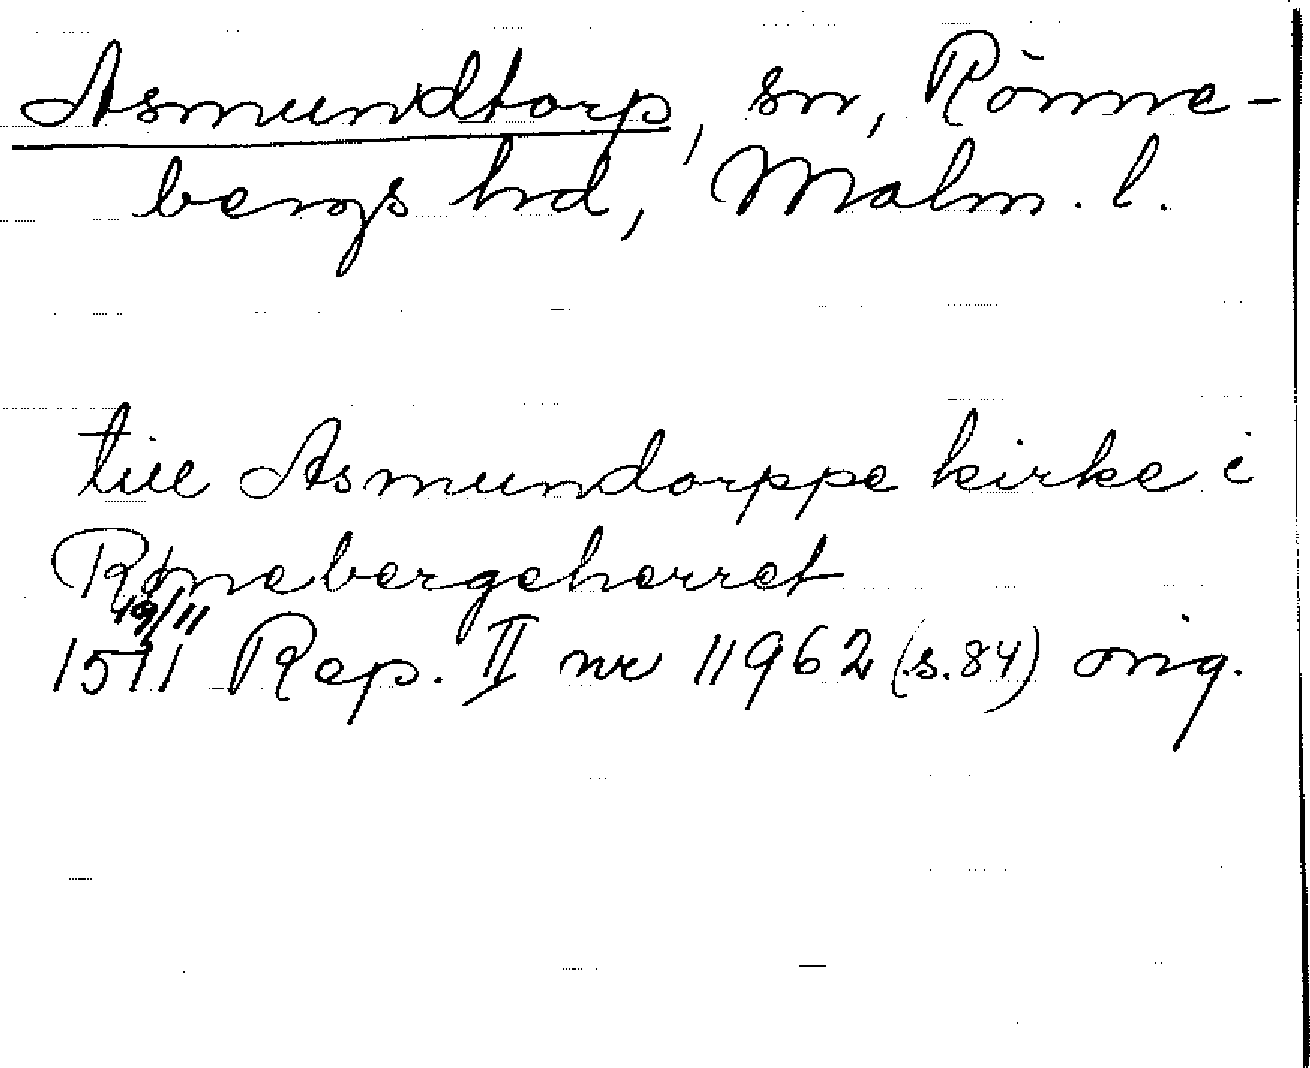 Asmundtorp, sn, Rönne-
bergs hd, Malm. l.
till Asmundorppe kirke i
Rønebergeherret
19/11
1511 Rep. II nr 11962 (s. 84) orig.